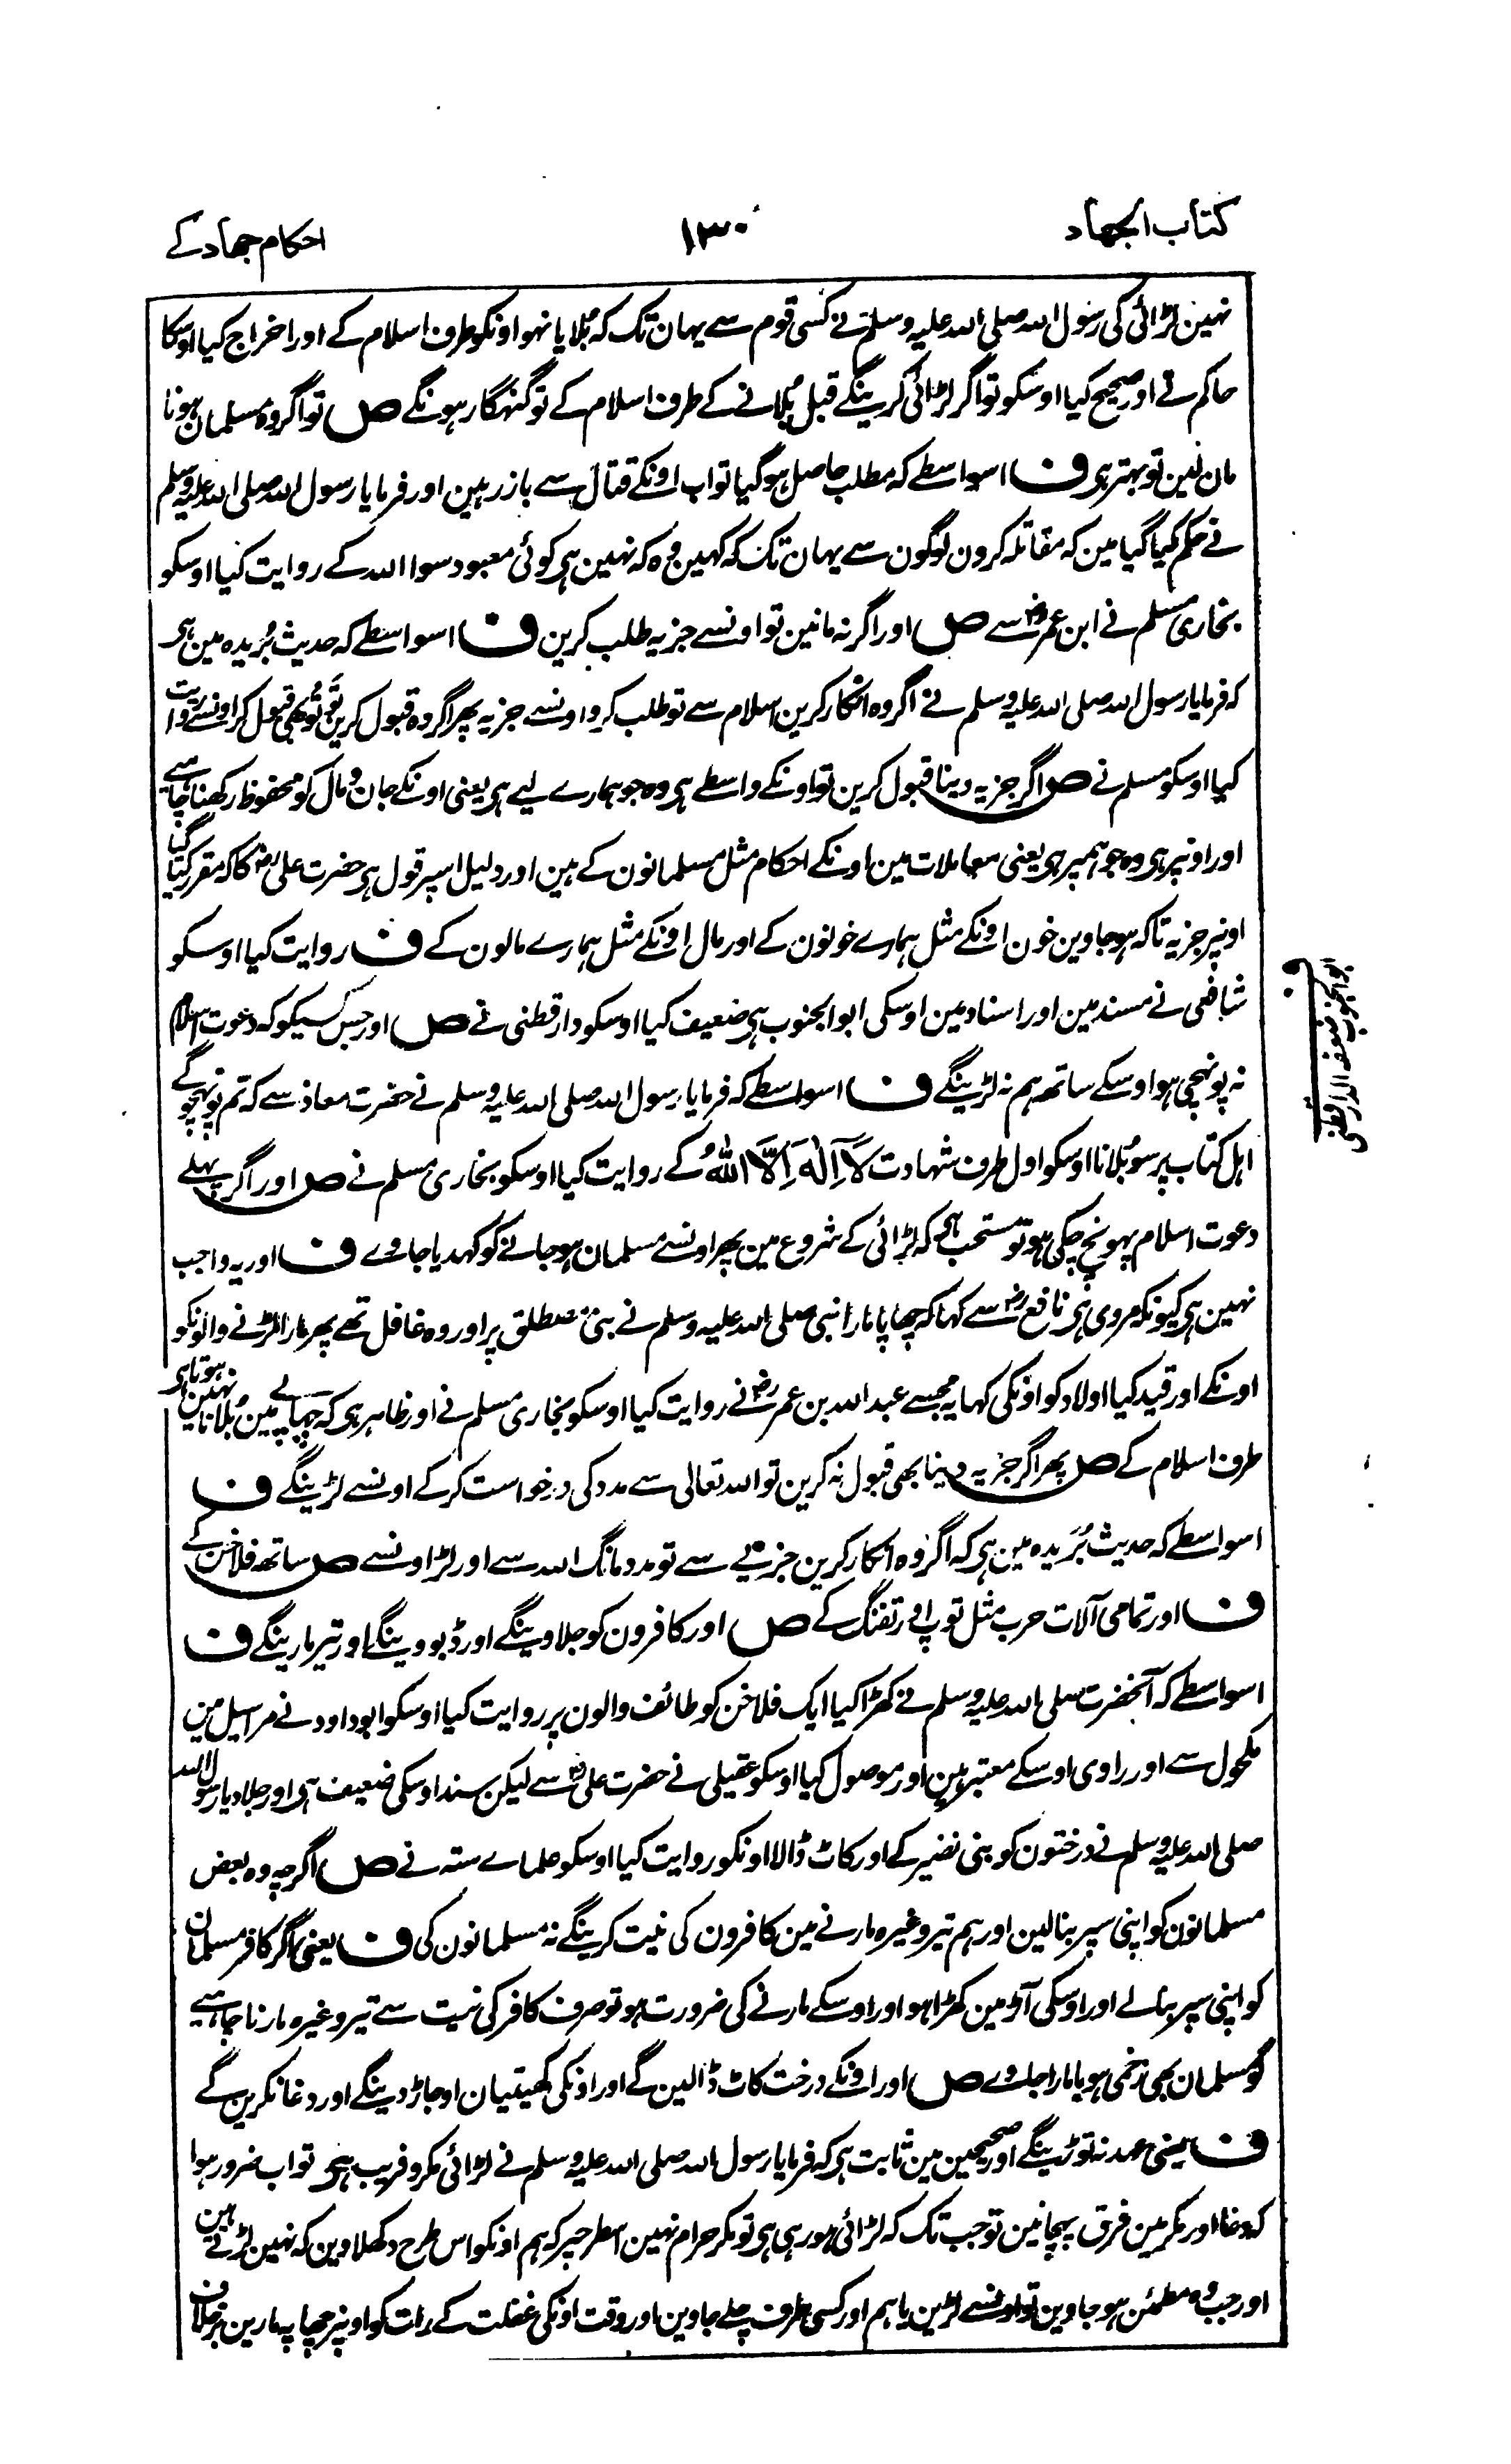 کتاب الجهاد
۱۳۰
احکام جهاد کے
نہین لڑائی کی رسول اللہ صلی اللہ علیہ وسلم نے کسی قوم سے یہان تک کہ بُلایا نہو اونکو طرف اسلام کے اور اخراج کیا اوسکا
حاکم نے اور صحیح کیا اوسکو تو اگر لڑائی کرینگے قبل بُلانے کے طرف اسلام کے تو گنہگار ہونگے ص تو اگر وہ مسلمان ہونا
مان لین تو بہتر ہی ف اسواسطے کہ مطلب حاصل ہو گیا تو اب اونکے قتال سے باز رہین اور فرمایا رسول اللہ صلی اللہ علیہ وسلم
نے حکم کیا گیا مین کہ مقاتلہ کرون لوگون سے یہان تک کہ کہین وہ کہ نہین ہی کوئی معبود سوا اللہ کے روایت کیا اوسکو
بخاری مسلم نے ابن عمرؓ سے ص اور اگر نہ مانین تو اونسے جزیہ طلب کرین ف اسواسطے کہ حدیث بُریدہ مین ہی
کہ فرمایا رسول اللہ صلی اللہ علیہ وسلم نے اگر وہ انکار کرین اسلام سے تو طلب کرو اونسے جزیہ پھر اگر وہ قبول کرین تو تُو بھی قبول کر اونسے روایت
کیا اوسکو مسلم نے ص اگر جزیہ دینا قبول کرین تو اونکے واسطے ہی وہ جو ہمارے لیے ہی یعنی اونکے جان و مال کو محفوظ رکھنا چاہیے
اور اونپر ہی وہ جو ہمپر ہی یعنی معاملات مین اونکے احکام مثل مسلمانون کے ہین اور دلیل اسپر قول ہی حضرت علیؓ کا کہ مقرر کیا گیا
اونپر جزیہ تاکہ ہو جاوین خون اونکے مثل ہمارے خونون کے اور مال اونکے مثل ہمارے مالون کے ف روایت کیا اوسکو
شافعی نے مسند مین اور اسناد مین اوسکی ابو الجنوب ہی ضعیف کیا اوسکو دارقطنی نے ص اور جس کسیکو کہ دعوت اسلام
نہ پونہچی ہو اوسکے ساتھ ہم نہ لڑینگے ف اسواسطے کہ فرمایا رسول اللہ صلی اللہ علیہ وسلم نے حضرت معاذ سے کہ تم پونہچوگے
اہل کتاب پر سو بُلانا اوسکو اول طرف شہادت لَآ اِلٰہَ اِلَّا اللّٰہُ کے روایت کیا اوسکو بخاری مسلم نے ص اور اگر پہلے
دعوت اسلام پہونچ چکی ہو تو مستحب ہی کہ لڑائی کے شروع مین پھر اونسے مسلمان ہو جانے کو کہدیا جاوے ف اور یہ واجب
نہین ہی کیونکہ مروی ہی نافعؓ سے کہا کہ چھاپا مارا نبی صلی اللہ علیہ وسلم نے بنی مصطلق پر اور وہ غافل تھے پھر مارا لڑنے والونکو
اونکے اور قید کیا اولاد کو اونکی کہا یہ مجھسے عبد اللہ بن عمرؓ نے روایت کیا اوسکو بخاری مسلم نے اور ظاہر ہی کہ چھاپے مین بُلانا نہین ہوتا ہی
طرف اسلام کے ص پھر اگر جزیہ دینا بھی قبول نہ کرین تو اللہ تعالی سے مدد کی درخواست کرکے اونسے لڑینگے ف
اسواسطے کہ حدیث بُرَیدہ مین ہی کہ اگر وہ انکار کرین جزیے سے تو مدد مانگ اللہ سے اور لڑ اونسے ص ساتھ فلاخن کے
ف اور تمامی آلات حرب مثل توپ اور تفنگ کے ص اور کافرون کو جلاوینگے اور ڈبووینگے اور تیر مارینگے ف
اسواسطے کہ آنحضرت صلی اللہ علیہ وسلم نے کھڑا کیا ایک فلاخن کو طائف والون پر روایت کیا اوسکو ابو داود نے مراسیل مین
مکحول سے اور راوی اوسکے معتبر ہین اور موصول کیا اوسکو عقیلی نے حضرت علیؓ سے لیکن سند اوسکی ضعیف ہی اور جلا دیا رسول اللہ
صلی اللہ علیہ وسلم نے درختون کو بنی نضیر کے اور کاٹ ڈالا اونکو روایت کیا اوسکو علماے ستہ نے ص اگرچہ وہ بعض
مسلمانون کو اپنی سپر بنا لین اور ہم تیر وغیرہ مارنے مین کافرون کی نیت کرینگے نہ مسلمانون کی ف یعنی اگر کافر مسلمان
کو اپنی سپر بنالے اور اوسکی آڑ مین کھڑا ہو اور اوسکے مارنے کی ضرورت ہو تو صرف کافر کی نیت سے تیر وغیرہ مارنا چاہیے
گو مسلمان بھی زخمی ہو یا مارا جاوے ص اور اونکے درخت کاٹ ڈالین گے اور اونکی کھیتیان اوجاڑ دینگے اور دغا نکرین گے
ف یعنی عہد نہ توڑینگے اور صحیحین مین ثابت ہی کہ فرمایا رسول اللہ صلی اللہ علیہ وسلم نے لڑائی مکر و فریب ہی تو اب ضرور ہوا
کہ دغا اور مکر مین فرق پہچانین تو جب تک کہ لڑائی ہو رہی ہی تو مکر حرام نہین اسطرحپر کہ ہم اونکو اس طرح دکھلاوین کہ نہین لڑتے ہین
اور جب وہ مطمئن ہو جاوین تو اونسے لڑین یا ہم اور کسی طرف چلے جاوین اور وقت اونکی غفلت کے رات کو اونپر چھاپہ مارین برخلاف
ف
ابو الجنوب ضعفہ الدارقطنی